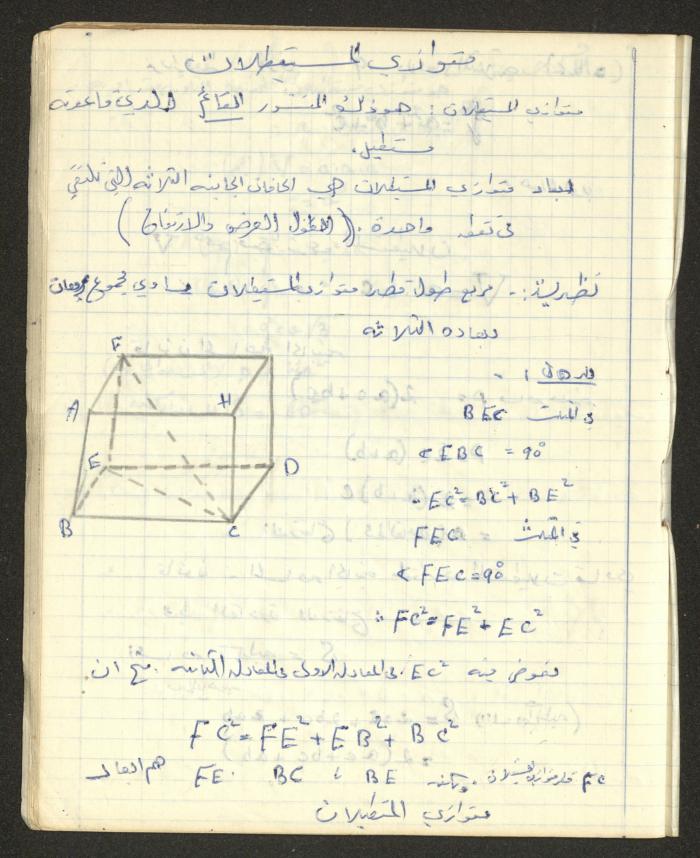 متوازي المستطيلات
متوازي المستطيلات : هو ذلك المنشور القائم الذي قاعدته
مستطيل.
ابعاد متوازي المستطيلات هي الحافات الجانبيه الثلاثه التي تلتقي
في نقطه واحدة . (الطول العرض والارتفاع)
نظرية :. مربع طول قطر متوازي المستطيلات يساوي مجموع مربعات
ابعاده الثلاثه
F
A
H
E
D
B
C
البرهان : -
في المثلث BEC
< EBC = 90°
∴ EC² = BC² + BE²
في المثلث FEC
< FEC = 90°
∴ FC² = FE² + EC²
نعوض قيمه EC² في المعادله الاولى في المعادله الثانيه ينتج ان
FC² = FE² + EB² + BC²
FC قطر متوازي المستطيلات . ولكن BE ، BC ، FE هم ابعاد
متوازي المستطيلات